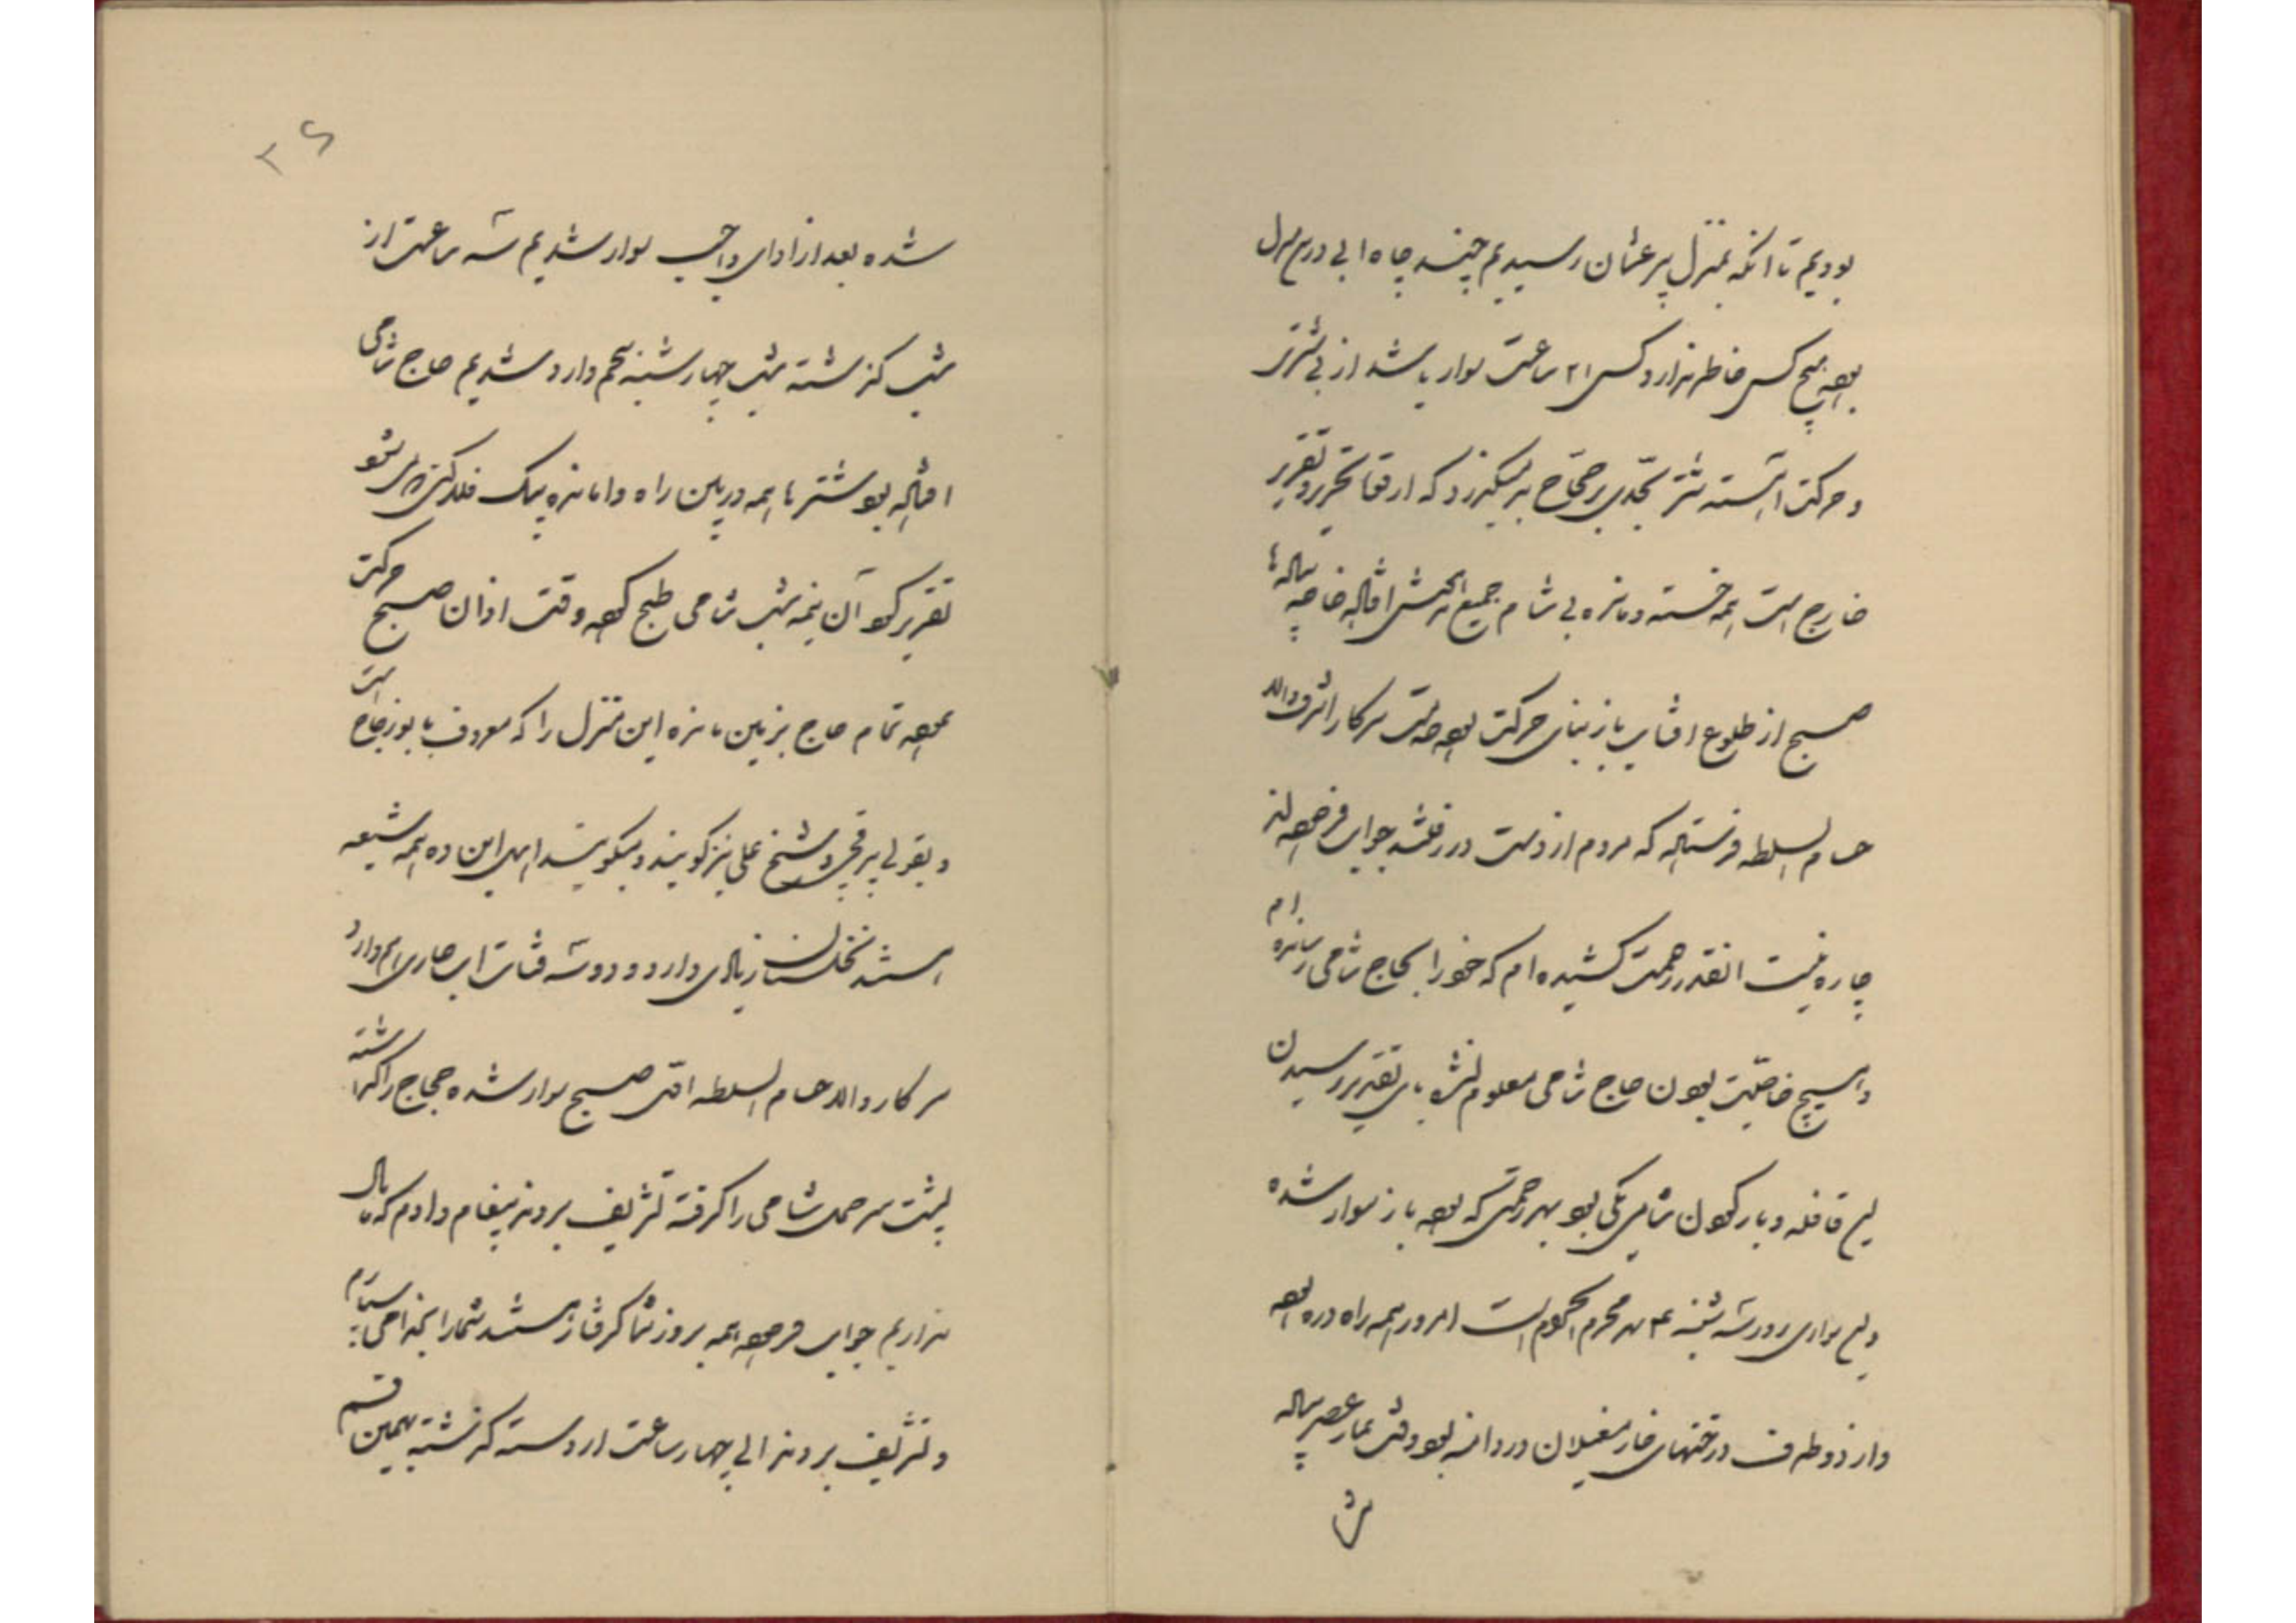 بودیم تا آنکه بمنزل بیر عثمان رسیدیم چند چاه ابی در این منزل
بود هیچ کس خاطر ندارد کسی ۲۱ ساعت سوار باشد از بی شتری
و حرکت آهسته شتر بحدی بر حجاج بد میگذرد که از قوه تحریر و تقریر
خارج است همه خسته و مانده بی شام جمیع افتاده خاصه پیاده‌ها
صبح از طلوع افتاب باز بنای حرکت بود خدمت سرکار اشرف والا
حسام السلطنه فرستاده که مردم از دست در رفتند جواب فرموده‌اند
چاره نیست انقدر زحمت کشیده‌ام که خود را بحاج شامی رسانده‌ام
و هیچ خاصیت بودن حاج شامی معلوم نشد باری تقدیر رسیدن
این قافله و بار کردن شامی یکی بود بهر زحمتی که بود باز سوار شده
و این سواری روز سه شنبه محرم الحرام است امروز همه راه دره بود
و از دو طرف درختهای خار مغیلان در دامنه بود وقت نماز عصر پیاده
شده
۲۶
شده بعد از ادای واجب سوار شدیم سه ساعت از
شب گذشته شب چهارشنبه پنجم وارد شدیم حاج شامی
افتاده بود شتر ما همه در بین راه وامانده
تقریر کرد آن نیمه شب شامی طبخ کرده وقت اذان صبح حرکت
نموده تمام حاج بزمین مانده این منزل را که معروف بابوزجاج است
و بقولی بیر شیخ علی نیز گویند و میگویند اهل این ده همه شیعه
هستند نخلستان زیادی دارد و دو سه قنات اب جاری هم دارد
سرکار والا حسام السلطنه اول صبح سوار شده حجاج را گذاشته
پشت سر حمل شامی را گرفته تشریف بردند پیغام دادم که ما مال
نداریم جواب فرموده همه بروز شما گرفتار هستند شما را بخدا می‌سپارم
و تشریف بردند الی چهار ساعت از دسته گذشته بهمین قسم